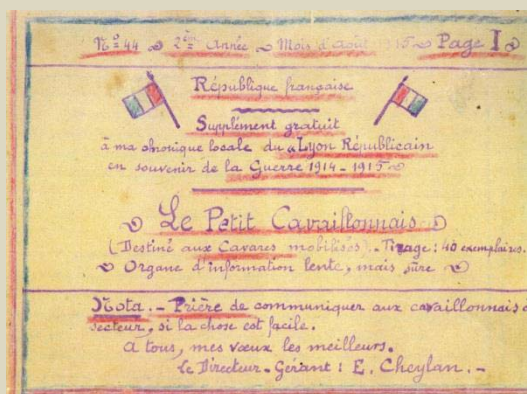 No 44 2ème Année Mois d'août 1915 Page I
République française
Supplément gratuit
à ma chronique locale du "Lyon Républicain
en souvenir de la Guerre 1914-1915
Le Petit Cavaillonnais
(Destiné aux Cavares mobilisés). - Tirage : 40 exemplaires.
Organe d'information lente, mais sûre
Nota. - Prière de communiquer aux cavaillonnais
secteur, si la chose est facile.
A tous, mes vœux les meilleurs.
Le Directeur-Gérant : E. Cheylan. -